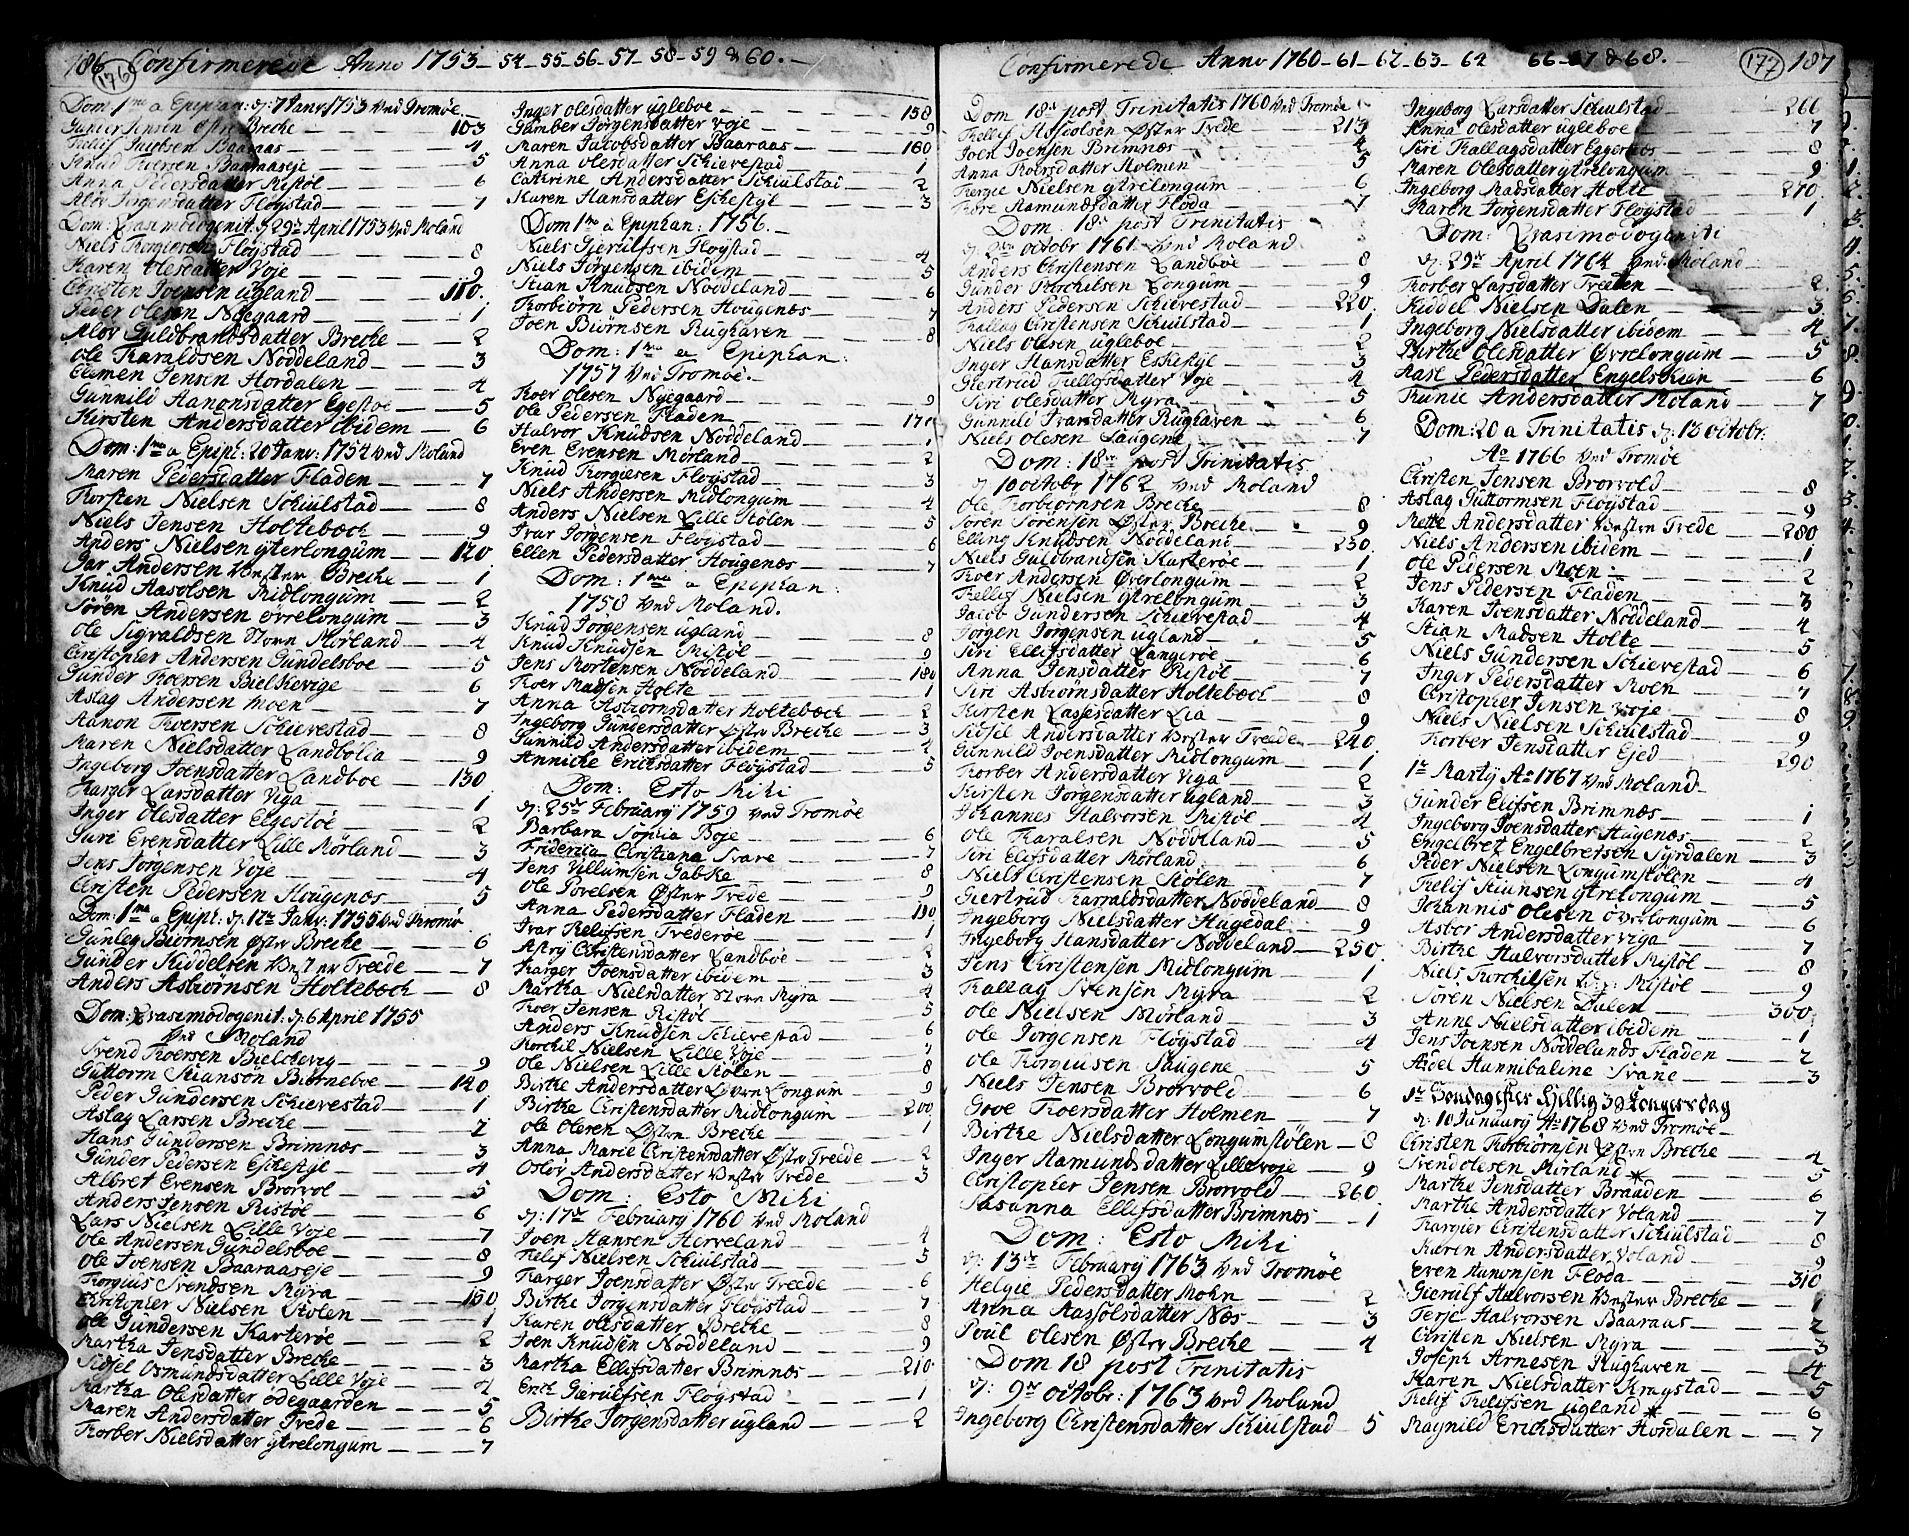 186 Confirmerede Anno 1753-54-55-56-57-58-59 & 60.
176
Dom: 1me a Epiphan: d: 7 Janv: 1753 ved Tromøe.
Gunder Jensen Østre Breche 103
Baaraas 4
Knud Baaraaseje 5
Anna Pedersdatter Ristøl 6
Alov Jørgensdatter Fløystad 7
Dom: Qvasimodogenit: d 29de April 1753 ved Moland
Niels Fløystad 8
Karen Olesdatter Voje 9
Christen Joensen Ugland 110.
Peder Olesen Nyegaard 1
Alov Guldbrandsdatter Breche 2
Ole Haraldsen Nøddeland 3
Clemen Jensen Hordalen 4
Gunnild Aanonsdatter Egestoe 5
Kirsten Andersdatter ibidem 6
Dom: 1me a Epiph: 20 Janv: 1754 ved Moland
Maren Pedersdatter Fladen 7
Torsten Nielsen Schiulstad 8
Niels Jensen Holtebæch 9
Anders Nielsen Ytrelongum 120
Andersen Vester Breche 1
Knud Aasolsen Midlongum 2
Søren Andersen Øvrelongum 3
Ole Sigvaldsen Store Mørland 4
Christopher Andersen Gundelsboe 5
Gunder Toersen Bielkevige 6
Aslag Andersen Moen 7
Aanon Toersen Schievestad 8
Maren Nielsdatter Landbolia 9
Ingeborg Joensdatter Landboe 130
Larsdatter Viga 1
Inger Olesdatter Elgestøe 2
Guri Evensdatter Lille Mørland 3
Jens Jørgensen Voje 4
Christen Pedersen Hougenæs 5
Dom: 1me a Epiph: d: 12te Janv: 1755 ved Tromø
Gunleg Biørnsen Øster Breche 6
Gunder Kiddelsen Vester Treede 7
Anders Asbiørnsen Holtebæch 8
Dom: Qvasimodogenit: d 6 April 1755
ved Moland
Svend Toersen Bielchevig 9
Guttorm Stiansøn Biørneboe 140
Peder Gundersen Schievestad 1
Aslag Larsen Breche 2
Hans Gundersen Brimnæs 3
Gunder Pedersen Eschestyl 4
Albret Evensen Brørvol 5
Anders Jensen Ristøl 6
Lars Nielsen Lille Voje 7
Ole Andersen Gundelsboe 8
Ole Joensen Baaraaseje 9
Torgius Svendsen Myra 150
Christopher Nielsen Stølen 1
Ole Gundersen Karterøe 2
Martha Jensdatter Breche 3
Sidsel Osmundsdatter Lille Voje 4
Martha Olesdatter Ødegaarden 5
Maren Andersdatter Trede 6
Torber Nielsdatter Ytrelongum 7
Inger Olesdatter Ugleboe 158
Gumber Jørgensdatter Voje 9
Maren Jacobsdatter Baaraas 160
Anna Olesdatter Schievestad 1
Cathrine Andersdatter Schiulstad 2
Karen Hansdatter Eschestyl 3
Dom 1me a Epiphan: 1756.
Niels Gierulfsen Fløystad 4
Niels Jørgensen ibidem 5
Stian Knudsen Nøddeland 6
Torbiørn Pedersen Hougenæs 7
Joen Biørnsen Rughaven 8
Dom: 1me a Epiphan:
1757 ved Tromøe.
Toer Olesen Nyegaard 9
Ole Pedersen Fladen 170
Halvor Knudsen Nøddeland 1
Even Evensen Mørland 2
Knud Torgiusen Fløystad 3
Niels Andersen Midlongum 4
Anders Nielsen Lille Stølen 5
Ivar Jørgensen Fløystad 6
Ellen Pedersdatter Hougenæs 7
Dom: 1me a Epiphan:
1758 ved Moland.
Knud Jørgensen Ugland 8
Knud Knudsen Ristøl 9
Jens Mortensen Nøddeland 180
Toer Madsen Holte 1
Anna Asbiørnsdatter Holtebæch 2
Ingeborg Gundersdatter Øster Breche 3
Gunnild Andersdatter ibidem 4
Anniche Erichsdatter Fløystad 5
Dom: Esto Mihi
d: 25de February 1759 ved Tromøe
Barbara Sophia Boje 6
Fridericia Christiana Svare 7
Jens Villumsen Gabke 8
Ole Povelsen Øster Trede 9
Anna Pedersdatter Fladen 190
Ivar Kelufsen Trederøe 1
Astrj Christensdatter Landboe 2
Karger Joensdatter ibidem 3
Martha Nielsdatter Store Myra 4
Toer Jensen Ristøl 5
Anders Knudsen Schievestad 6
Torchil Nielsen Lille Voje 7
Ole Nielsen Lille Stølen 8
Birthe Andersdatter Øvere Longum 9
Birthe Christensdatter Midlongum 200
Ole Olesen Østre Breche 1
Anna Marie Christensdatter Øster Treede 2
Oslov Andersdatter Vester Trede 3
Dom: Esto Mihi
d: 17de February 1760 ved Moland
Joen Hansen Herveland 4
Relef Nielsen Schiulstad 5
Karger Joensdatter Øster Treede 6
Birthe Jørgensdatter Fløystad 7
Karen Olesdatter Breche 8
Joen Knudsen Nøddeland 9
Martha Ellefsdatter Brimnæs 210
Erich Gierulfsen Fløystad 1
Birthe Jørgensdatter Ugland 2
Confirmerede Anno 1760-61-62-63-64 66-67 & 68.
177 187
Dom 18de post Trinitatis 1760 ved Tromøe
Øster Trede 213
Joen Joensen Brimnæs 4
Anna Toersdatter Holmen 5
Tergie Nielsen Ytrelongum 6
Tore Aamundsdatter Fløda 7
Dom: 18de post Trinitatis
d: octobr 1761 ved Moland
Anders Christensen Landboe 8
Gunder Torchilsen Longum 9
Anders Pedersen Schievestad 220
Tallag Christensen Schiulstad 1
Niels Olesen Ugleboe 2
Inger Hansdatter Eskestyl 3
Giertrud Tellefsdatter Voje 4
Siri Olesdatter Myra 5
Gunnild Ivarsdatter Rughaven 6
Niels Olesen Saugene 7
Dom: 18de post Trinitatis
d 10 octobr 1762 ved Moland
Ole Torbiørnsen Breche 8
Søren Sørensen Øster Breche 9
Elling Knudsen Nøddeland 230
Niels Guldbrandsen Karterøe 1
Toer Andersen Øvrelongum 2
Tellef Nielsen Ytrelongum 3
Jacob Gundersen Schievestad 4
Jørgen Jørgensen Ugland 5
Siri Ellefsdatter Langerøe 6
Anna Jensdatter Ristøl 7
Siri Asbiørnsdatter Holtebæch 8
Kirsten Lassesdatter Lia 9
Sidsel Andersdatter Vester Treede 240
Gunnild Joensdatter Midlongum 1
Torber Andersdatter Viga 2
Kirsten Jørgensdatter Ugland 3
Johannes Halvorsen Ristøl 4
Ole Haralsen Nøddeland 5
Siri Elefsdatter Mørland 6
Niels Christensen Stølen 7
Giertrud Harraldsdatter Nøddeland 8
Ingeborg Nielsdatter Hagedal 9
Ingeborg Hansdatter Nøddeland 250
Jens Christensen Midlongum 1
Tallag Svensen Myra 2
Ole Nielsen Mørland 3
Ole Jørgensen Fløystad 4
Ole Torgiusen Saugene 5
Niels Jensen Brørvold 6
Gove Toersdatter Holmen 7
Birthe Nielsdatter Longumstølen 8
Inger Aamundsdatter Lillevoje 9
Christopher Jensen Brørvold 260
Susanna Ellefsdatter Brimnæs 1
Dom: Esto Mihi
d: 13de February 1763 ved Tromøe
Helgie Pedersdatter Mohn 2
Anna Aassolsdatter Næs 3
Poul Olesen Østre Breche 4
Dom 18 post Trinitatis
d: 9de octobr: 1763 ved Moland
Ingeborg Christensdatter Schiulstad 5
Ingeborg Larsdatter Schiulstad 266
Anna Olesdatter Ugleboe 7
Siri Tallagsdatter Eggernæs 8
Maren Olesdatter Ytrelongum 9
Ingeborg Madsdatter Holte 270
Maren Jørgensdatter Fløystad 1
Dom: Qvasimodogeniti
d: 29de April 1764 ved Moland
Torber Larsdatter Treeden 2
Kiddel Nielsen Dalen 3
Ingeborg Nielsdatter ibidem 4
Birthe Olesdatter Øvrelongum 5
Aase Pedersdatter Engelskien 6
Tunie Andersdatter Moland 7
Dom: 20 a Trinitatis d: 13 octobr:
Ao 1766 ved Tromøe
Christen Jensen Brørvold 8
Aslag Guttormsen Fløystad 9
Mette Andersdatter Vester Trede 280
Niels Andersen ibidem 1
Ole Pedersen Moen 2
Jens Pedersen Fladen 3
Karen Joensdatter Nøddeland 4
Stian Madsen Holte 5
Niels Gundersen Schievestad 6
Inger Pedersdatter Moen 7
Christopher Jensen Voje 8
Niels Nielsen Schiulstad 9
Torber Jensdatter Ejed 290
1te Martij Ao 1767 ved Moland
Gunder Elifsen Brimnæs 1
Ingeborg Joensdatter Hagenæs 2
Engelbret Engelbretsen Syrdalen 3
Peder Nielsen Longumstølen 4
Relef Stiansen Ytrelongum 5
Johannis Olesen Øverlongum 6
Asbor Andersdatter Viga 7
Birthe Halvorsdatter Ristøl 8
Niels Torchilsen Ristøl 9
Søren Nielsen Dalen 300
Anne Nielsdatter ibidem 1
Jens Joensen Nøddelands Fladen 2
Adel Hannibaline Svane 3
1te Søndag efter Hellig 3 Kongersdag
d: 10 January Ao 1768 ved Tromøe
Christen Torbiørnsen Østre Breche 4
Svend Olesen Mørland * 5
Marthe Jensdatter Braaden 6
Marthe Andersdatter Voland 7
Kargier Christensdatter Schiulstad 8
Karen Andersdatter Voland 9
Even Aanonsen Fløda 310
Gierulf Halvorsen Vester Breche 1
Terje Halvorsen Baaraas 2
Christen Nielsen Myra 3
Joseph Arnesen Rughaven 4
Karen Nielsdatter Kragstad 5
Relif Tholifsen Ugland * 6
Raynild Erichsdatter Hordalen 7